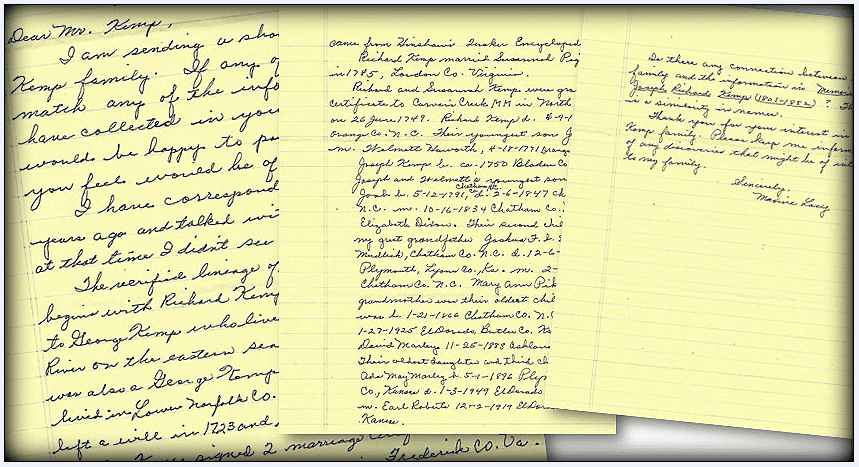 Dear Mr. Kemp,
I am sending a sho
Kemp family. If any of
match any of the info
have collected in your
would be happy to pa
you feel would be of
I have correspond
years ago and talked wi
at that time I didn't see
The verified lineage of
begins with Richard Kemp
to George Kemp who live
River on the eastern sea
was also a George Kemp
lived in Lower Norfolk Co.
left a will in 1723 and,
signed 2 marriage
Frederick Co. Va.
came from Hinshaw's Quaker Encycloped
Richard Kemp married Susannah
in 1745, Loudon Co. Virginia.
Richard and Susannah Kemp were gra
certificate to Carvers Creek MM in North
on 26 June 1749. Richard Kemp d. 4-9-1
Orange Co. N.C. Their youngest son J
m. Walmett Haworth, 4-18-1771 Orange
Joseph Kemp b. ca. 1750 Bladen Co
Joseph and Walmett's youngest son
b. 5-12-1791, Chatham Co. d. 2-6-1847 Ch
N.C. m. 10-16-1834 Chatham Co.,
Elizabeth Dixon. Their second chil
my great grandfather Joshua F.
Mudlick, Chatham Co. N.C. d. 12-6-
Plymouth, Lyon Co., Ks. m. 2-
Chatham Co. N.C. Mary Ann
grandmother was their oldest chil
was b. 1-21-1866 Chatham Co. N.C
1-27-1925 ElDorado, Butler Co. Ks
David Marley 11-25-1888
Their oldest daughter and third ch
Ada May Marley b. 5-1-1896 Plym
Co., Kansas d. 1-3-1949 ElDorado
m. Earl Roberts 12-2-1919 ElDora
Kansas.
Is there any connection between
family and the information in Memoris
Joseph Richard Kemp (1801-1882)? Th
is a similarity in names.
Thank you for your interest in
Kemp family. Please keep me inform
of any discoveries that might be of int
to my family.
Sincerely,
Maxine Lacy